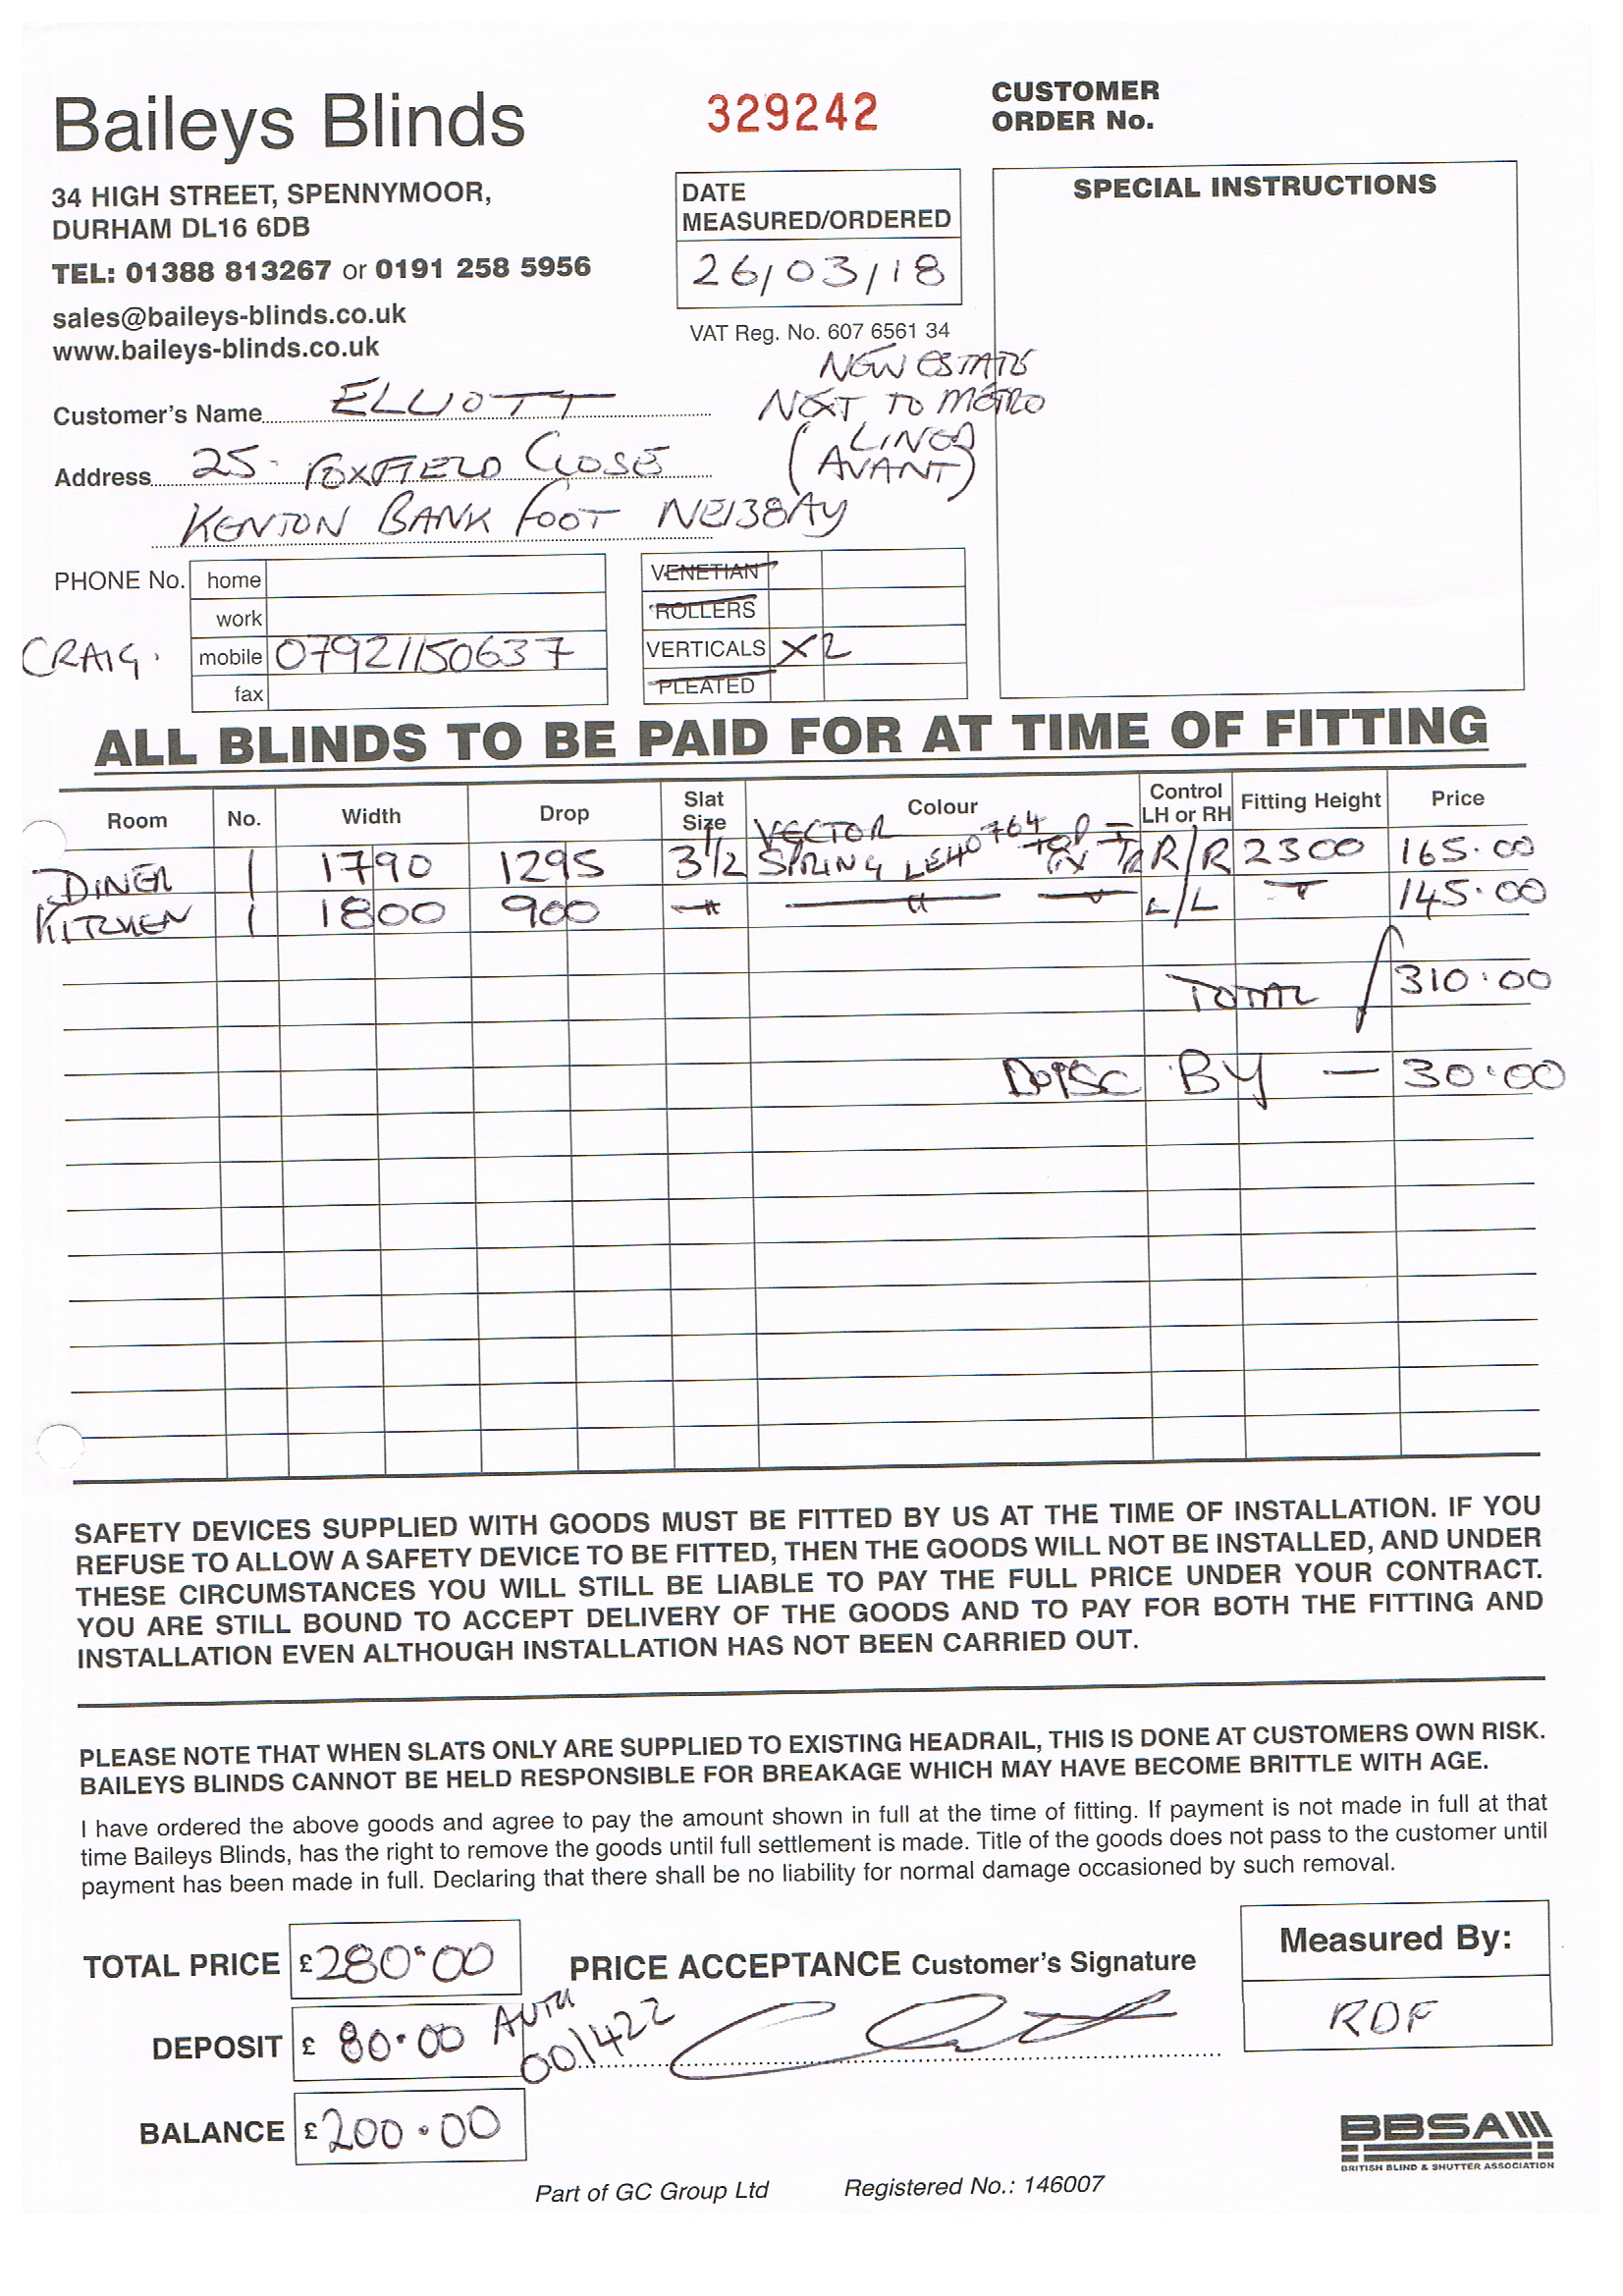 Baileys Blinds
329242
CUSTOMER
ORDER No.
34 HIGH STREET, SPENNYMOOR,
DURHAM DL16 6DB
TEL: 01388 813267 or 0191 258 5956
sales@baileys-blinds.co.uk
www.baileys-blinds.co.uk
DATE
MEASURED/ORDERED
26/03/18
VAT Reg. No. 607 6561 34
SPECIAL INSTRUCTIONS
NEW ESTATE
NEXT TO METRO
(LINEA
AVANT)
Customer's Name ELLIOTT
Address 25 FOXFIELD CLOSE
KENTON BANK FOOT NE13 8AY
PHONE No. home
work
CRAIG. mobile 07921150637
fax
VENETIAN
ROLLERS
VERTICALS X2
PLEATED
ALL BLINDS TO BE PAID FOR AT TIME OF FITTING
Room No. Width Drop Slat Size Colour Control LH or RH Fitting Height Price
DINER 1 1790 1295 3 1/2 VECTOR SPRING TOP FIX R/R 2300 165.00
KITCHEN 1 1800 900 " " " L/L " 145.00
TOTAL 310.00
DISC BY — 30.00
SAFETY DEVICES SUPPLIED WITH GOODS MUST BE FITTED BY US AT THE TIME OF INSTALLATION. IF YOU
REFUSE TO ALLOW A SAFETY DEVICE TO BE FITTED, THEN THE GOODS WILL NOT BE INSTALLED, AND UNDER
THESE CIRCUMSTANCES YOU WILL STILL BE LIABLE TO PAY THE FULL PRICE UNDER YOUR CONTRACT.
YOU ARE STILL BOUND TO ACCEPT DELIVERY OF THE GOODS AND TO PAY FOR BOTH THE FITTING AND
INSTALLATION EVEN ALTHOUGH INSTALLATION HAS NOT BEEN CARRIED OUT.
PLEASE NOTE THAT WHEN SLATS ONLY ARE SUPPLIED TO EXISTING HEADRAIL, THIS IS DONE AT CUSTOMERS OWN RISK.
BAILEYS BLINDS CANNOT BE HELD RESPONSIBLE FOR BREAKAGE WHICH MAY HAVE BECOME BRITTLE WITH AGE.
I have ordered the above goods and agree to pay the amount shown in full at the time of fitting. If payment is not made in full at that
time Baileys Blinds, has the right to remove the goods until full settlement is made. Title of the goods does not pass to the customer until
payment has been made in full. Declaring that there shall be no liability for normal damage occasioned by such removal.
TOTAL PRICE £280.00
PRICE ACCEPTANCE Customer's Signature
Measured By:
RDF
DEPOSIT £ 80.00 AUTH
001422
BALANCE £200.00
BBSA
BRITISH BLIND & SHUTTER ASSOCIATION
Part of GC Group Ltd Registered No.: 146007